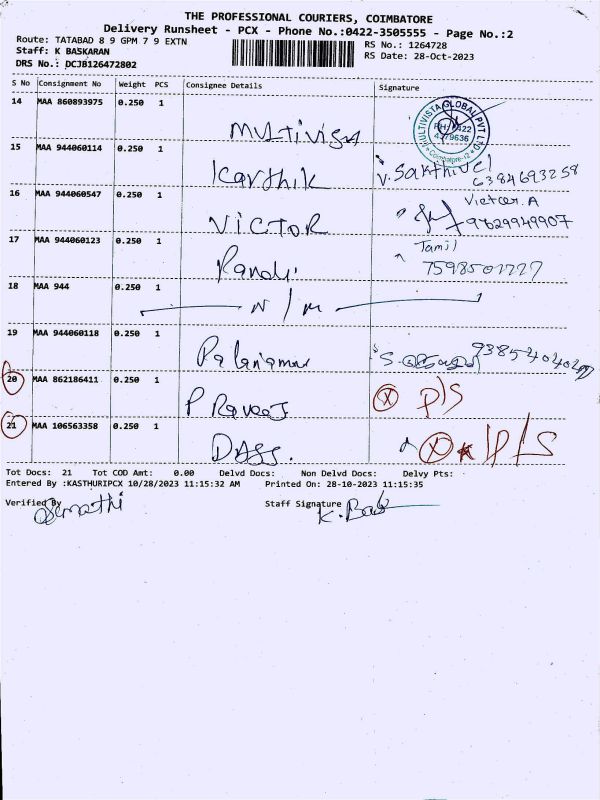 THE PROFESSIONAL COURIERS, COIMBATORE
Delivery Runsheet - PCX - Phone No.:0422-3505555 - Page No.:2
Route: TATABAD 8 9 GPM 7 9 EXTN
RS No.: 1264728
Staff: K BASKARAN
RS Date: 28-Oct-2023
DRS No.: DCJB126472802
S No Consignment No Weight PCS Consignee Details Signature
14 MAA 860893975 0.250 1
MULTIVISTA GLOBAL PVT LTD
Coimbatore-12
15 MAA 944060114 0.250 1 Karthik V. Sakthivel
6384693258
16 MAA 944060547 0.250 1 VICTOR
9629949907
17 MAA 944060123 0.250 1 Tamil
18 MAA 944 0.250 1
N/M
19 MAA 944060118 0.250 1
20 MAA 862186411 0.250 1 P/S
21 MAA 106563358 0.250 1 DASS. P/S
Tot Docs: 21 Tot COD Amt: 0.00 Delvd Docs: Non Delvd Docs: Delvy Pts:
Entered By :KASTHURIPCX 10/28/2023 11:15:32 AM Printed On: 28-10-2023 11:15:35
Verified By Staff Signature
K. Bas